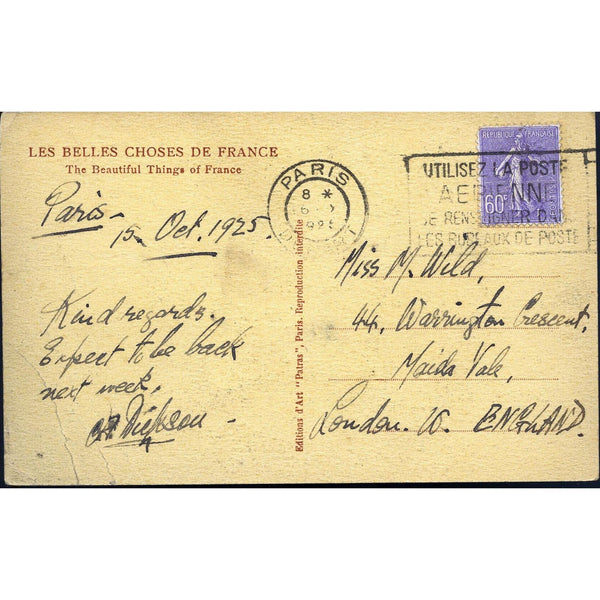 LES BELLES CHOSES DE FRANCE
The Beautiful Things of France
Paris
15 Oct. 1925
Kind regards.
Expect to be back
next week,
Dickson
Editions d'Art "Patras", Paris. Reproduction interdite
PARIS
8 *
REPUBLIQUE FRANÇAISE
60c
UTILISEZ LA POSTE
AERIENNE
SE RENSEIGNER DANS
LES BUREAUX DE POSTE
Miss M. Wild,
44, Warrington Crescent,
Maida Vale,
London. W. ENGLAND.